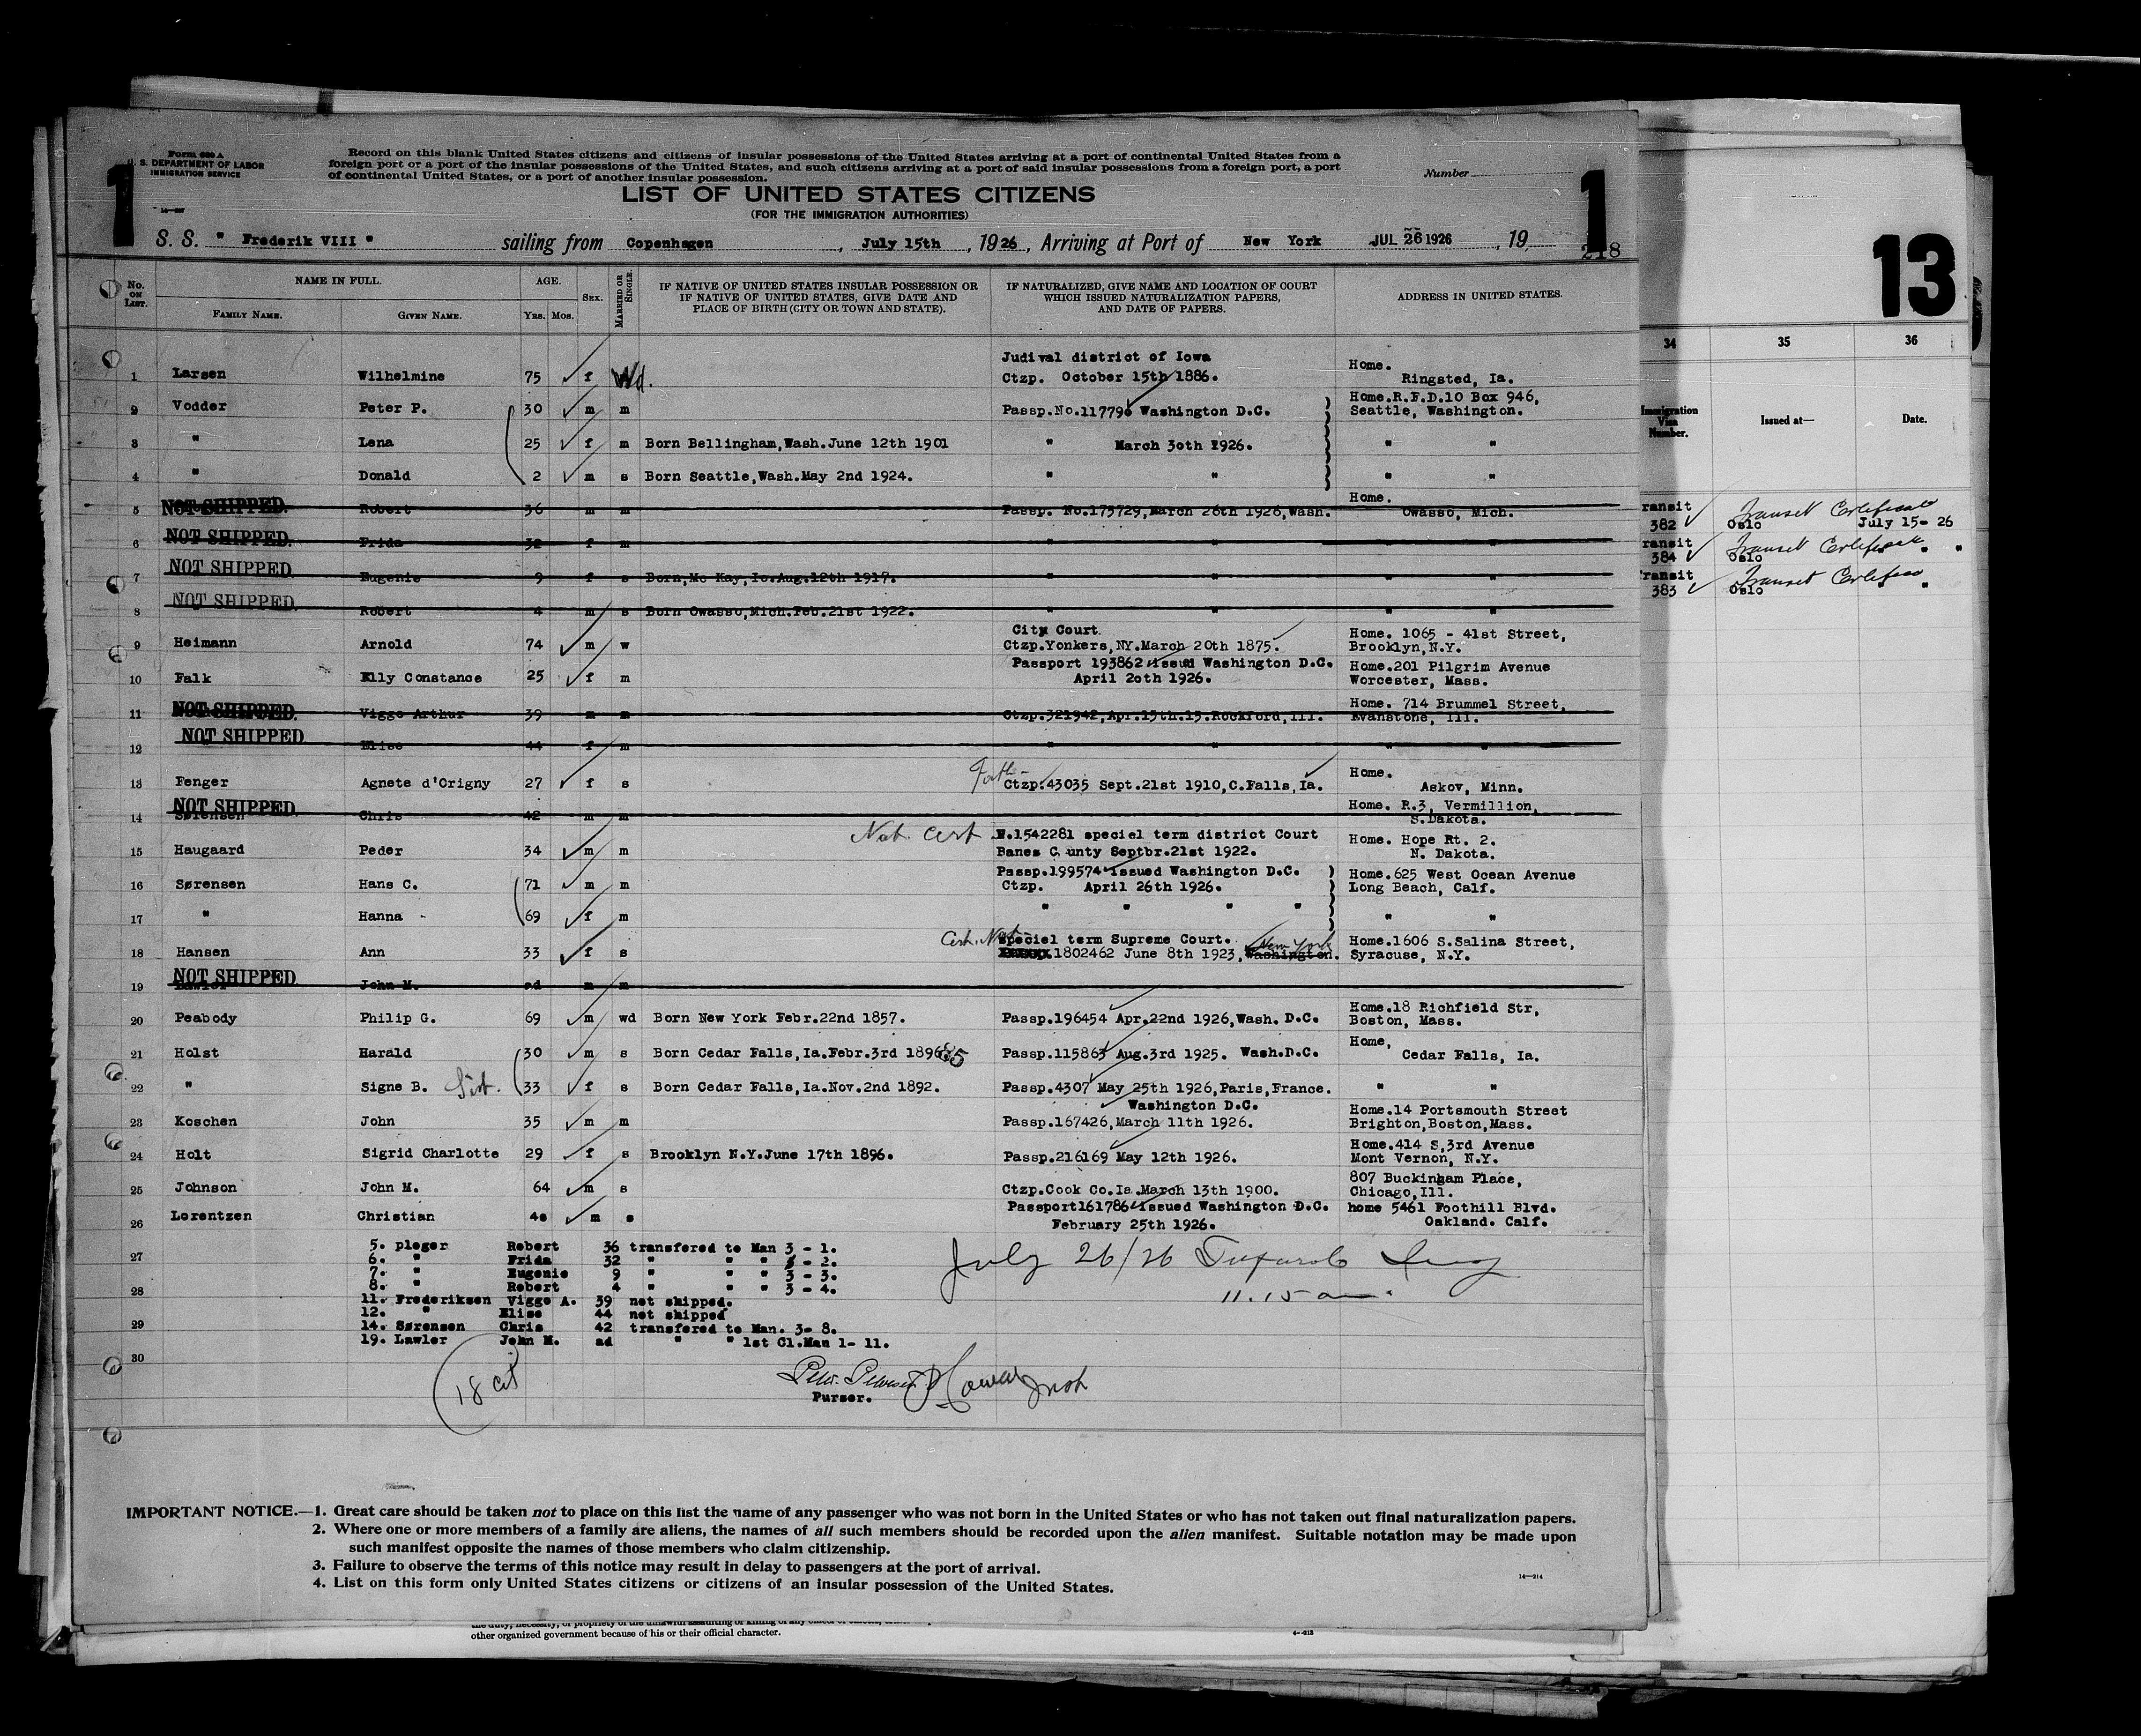 Form 630 A
U. S. DEPARTMENT OF LABOR
IMMIGRATION SERVICE
1
Record on this blank United States citizens and citizens of insular possessions of the United States arriving at a port of continental United States from a
foreign port or a port of the insular possessions of the United States, and such citizens arriving at a port of said insular possessions from a foreign port, a port
of continental United States, or a port of another insular possession.
Number
1
LIST OF UNITED STATES CITIZENS
(FOR THE IMMIGRATION AUTHORITIES)
S. S. " Frederik VIII " sailing from Copenhagen, July 15th, 1926, Arriving at Port of New York JUL 26 1926, 19
218
No. ON LIST. NAME IN FULL. FAMILY NAME. GIVEN NAME. AGE. YRS. MOS. SEX. MARRIED OR SINGLE. IF NATIVE OF UNITED STATES INSULAR POSSESSION OR IF NATIVE OF UNITED STATES, GIVE DATE AND PLACE OF BIRTH (CITY OR TOWN AND STATE). IF NATURALIZED, GIVE NAME AND LOCATION OF COURT WHICH ISSUED NATURALIZATION PAPERS, AND DATE OF PAPERS. ADDRESS IN UNITED STATES.
Judival district of Iowa Home.
1 Larsen Wilhelmine 75 f Wd. Ctzp. October 15th 1886. Ringsted, Ia.
Home.R.F.D.10 Box 946,
2 Vodder Peter P. 30 m m Passp.No.117790 Washington D.C. Seattle, Washington.
3 " Lena 25 f m Born Bellingham,Wash.June 12th 1901 " March 30th 1926. " "
4 " Donald 2 m s Born Seattle,Wash.May 2nd 1924. " " " "
Home.
5 NOT SHIPPED. Robert 36 m m Passp. No.175729,March 26th 1926,Wash. Owasso, Mich.
6 NOT SHIPPED. Frida 32 f m " " " "
7 NOT SHIPPED. Eugenie 9 f s Born,Mc Kay,Io.Aug.12th 1917. " " " "
8 NOT SHIPPED. Robert 4 m s Born Owasso,Mich.Feb.21st 1922. " " " "
City Court Home. 1065 - 41st Street,
9 Heimann Arnold 74 m w Ctzp.Yonkers,NY.March 20th 1875. Brooklyn,N.Y.
Passport 193862 issued Washington D.C. Home.201 Pilgrim Avenue
10 Falk Elly Constance 25 f m April 20th 1926. Worcester, Mass.
Home. 714 Brummel Street,
11 NOT SHIPPED. Viggo Arthur 39 m m Ctzp.321942,Apr.15th.15.Rockford,Ill. Evanstone, Ill.
12 NOT SHIPPED Elise 44 f m " " " "
Home.
13 Fenger Agnete d'Origny 27 f s Ctzp.43035 Sept.21st 1910,C.Falls,Ia. Askov, Minn.
NOT SHIPPED. Home. R.3, Vermillion,
14 Sørensen Chris 42 m m S.Dakota.
Nat. Cert N.1542281 speciel term district Court Home. Hope Rt. 2.
15 Haugaard Peder 34 m m Banes C unty Septbr.21st 1922. N. Dakota.
Passp.199574 issued Washington D.C. Home.625 West Ocean Avenue
16 Sørensen Hans C. 71 m m Ctzp. April 26th 1926. Long Beach, Calf.
17 " Hanna - 69 f m " " " " " "
Cert. Nat speciel term Supreme Court. New York Home.1606 S.Salina Street,
18 Hansen Ann 33 f s 1802462 June 8th 1923, Washington. Syracuse, N.Y.
19 NOT SHIPPED. Lawler John M. ad m m
Home.18 Richfield Str,
20 Peabody Philip G. 69 m wd Born New York Febr.22nd 1857. Passp.196454 Apr.22nd 1926,Wash. D.C. Boston, Mass.
Home,
21 Holst Harald 30 m s Born Cedar Falls,Ia.Febr.3rd 1896 Passp.115863 Aug.3rd 1925. Wash.D.C. Cedar Falls, Ia.
22 " Signe B. Sist. 33 f s Born Cedar Falls,Ia.Nov.2nd 1892. Passp.4307 May 25th 1926,Paris,France. " "
Washington D.C. Home.14 Portsmouth Street
23 Koschen John 35 m m Passp.167426,March 11th 1926. Brighton,Boston,Mass.
Home.414 S,3rd Avenue
24 Holt Sigrid Charlotte 29 f s Brooklyn N.Y.June 17th 1896. Passp.216169 May 12th 1926. Mont Vernon, N.Y.
807 Buckingham Place,
25 Johnson John M. 64 m s Ctzp.Cook Co.Ia.March 13th 1900. Chicago,Ill.
Passport161786 issued Washington D.C. home 5461 Foothill Blvd.
26 Lorentzen Christian 40 m s February 25th 1926. Oakland. Calf.
27
28
29
30
5. pleger Robert 36 transfered to Man 3 - 1.
6. " Frida 32 " " " 3 - 2.
7. " Eugenie 9 " " " 3 - 3.
8. " Robert 4 " " " 3 - 4.
11. Frederiksen Viggo A. 39 not shipped.
12. " Elise 44 not shipped
14. Sørensen Chris 42 transfered to Man. 3- 8.
19. Lawler John M. ad " " 1st Cl.Man 1- 11.
July 26/26
11.15 am.
18 cit
Purser.
IMPORTANT NOTICE.—1. Great care should be taken not to place on this list the name of any passenger who was not born in the United States or who has not taken out final naturalization papers.
2. Where one or more members of a family are aliens, the names of all such members should be recorded upon the alien manifest. Suitable notation may be made upon
such manifest opposite the names of those members who claim citizenship.
3. Failure to observe the terms of this notice may result in delay to passengers at the port of arrival.
4. List on this form only United States citizens or citizens of an insular possession of the United States.
14—214
other organized government because of his or their official character.
13
34 35 36
Immigration Visa Number. Issued at— Date.
ransit Transit Certificate
382 Oslo July 15- 26
ransit Transit Certificate
384 Oslo " "
ransit Transit
383 Oslo " "